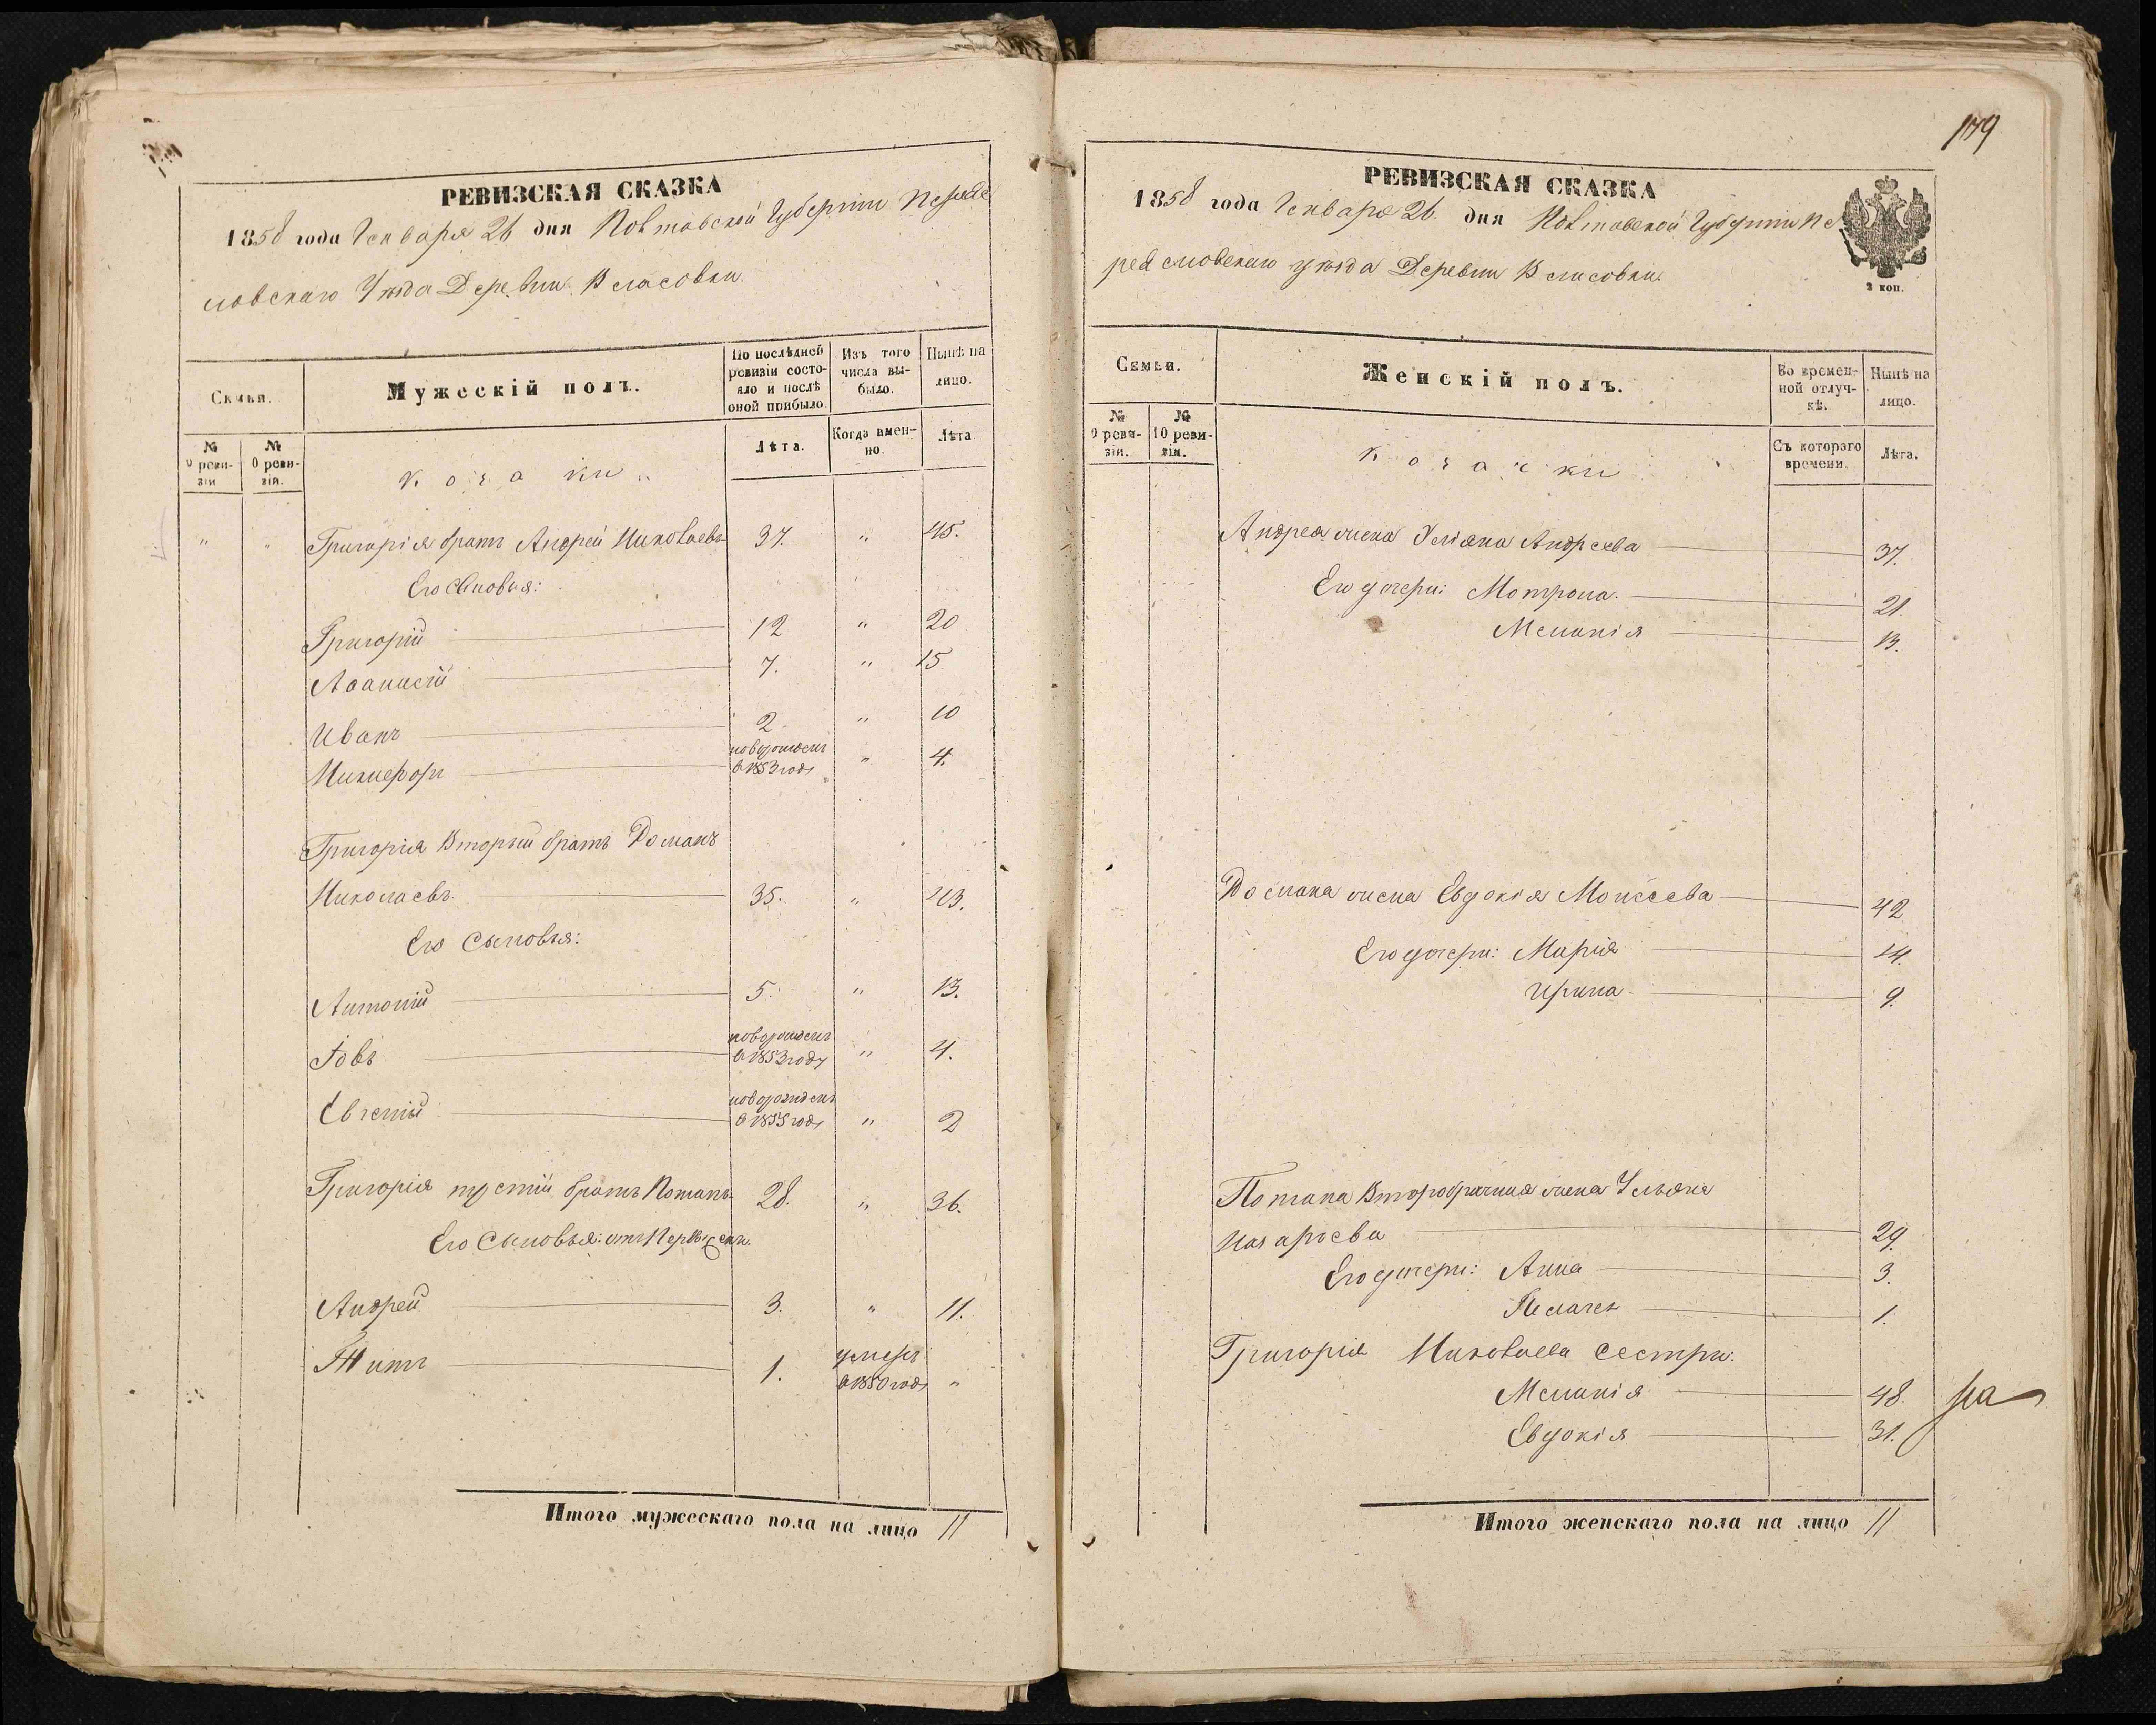 РЕВИЗСКАЯ СКАЗКА
1858 года Генваря 26 дня Полтавской Губернии Переяс
ловскаго Уѣзда Деревни Власовки.
Семьи.
Мужескій полъ.
По послѣдней ревизіи состояло и послѣ оной прибыло.
Изъ того числа выбыло.
Нынѣ на лицо.
№ 9 ревизіи
№ 10 ревизіи.
Козаки
Лѣта.
Когда именно.
Лѣта
" " Григорія братъ Андрей Николаевъ 37. " 45.
Его Сыновья:
Григорій 12 " 20
Афанасій 7. " 15
Иванъ 2 " 10
Никифоръ новорожденъ в 1853 году " 4.
Григорія Вторый братъ Романъ
Николаевъ. 35. " 43.
Его Сыновья:
Антоній 5. " 13.
Іовъ новорожденъ в 1853 году " 4.
Евгеній новорожденъ в 1855 году " 2
Григорія третій братъ Потапъ 28. " 36.
Его Сыновья: отъ Первой жены.
Андрей 3. " 11.
Титъ 1. умеръ в 1850 году "
Итого мужескаго пола на лицо 11
179
РЕВИЗСКАЯ СКАЗКА
1858 года Генваря 26. дня Полтавской Губернии Пе
реясловскаго уѣзда Деревни Власовки.
2 коп.
Семьи.
Женскій полъ.
Во временной отлучкѣ.
Нынѣ на лицо.
№ 9 ревизіи.
№ 10 ревизіи.
Козачки
Съ котораго времени.
Лѣта.
Андрея жена Уліяна Андреева 37.
Его дочери: Мотрона. 21.
Меланія 13.
Романа жена Евдокія Моисеева 42
Его дочери: Марія 14.
Ирина 9.
Потапа Второбрачная жена Ульяна
Назарьева 29.
Его дочери: Анна 3.
Пелагея 1.
Григорія Николаева Сестры.
Меланія 48.
Евдокія 31.
Итого женскаго пола на лицо 11